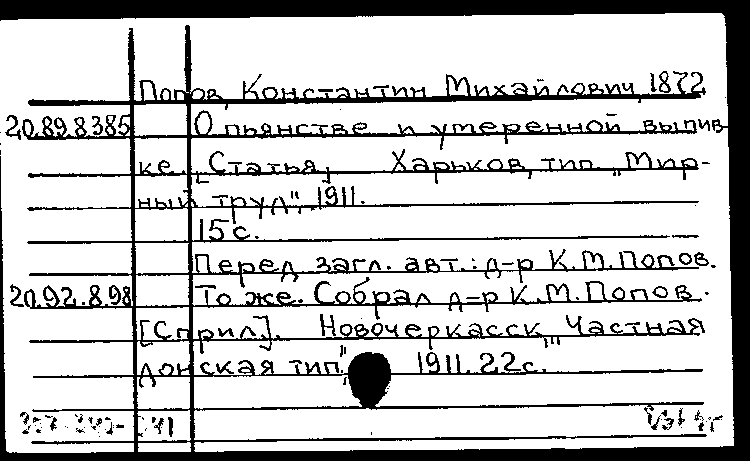 Попов, Константин Михайлович, 1872
20.89.8385 О пьянстве и умеренной выпив-
ке. [Статья]. Харьков, тип. "Мир-
ный труд", 1911.
15 с.
Перед загл. авт.: д-р К.М.Попов.
20.92.8.98 То же. Собрал д-р К.М.Попов.
[С прил.]. Новочеркасск, "Частная
донская тип." 1911. 22с.